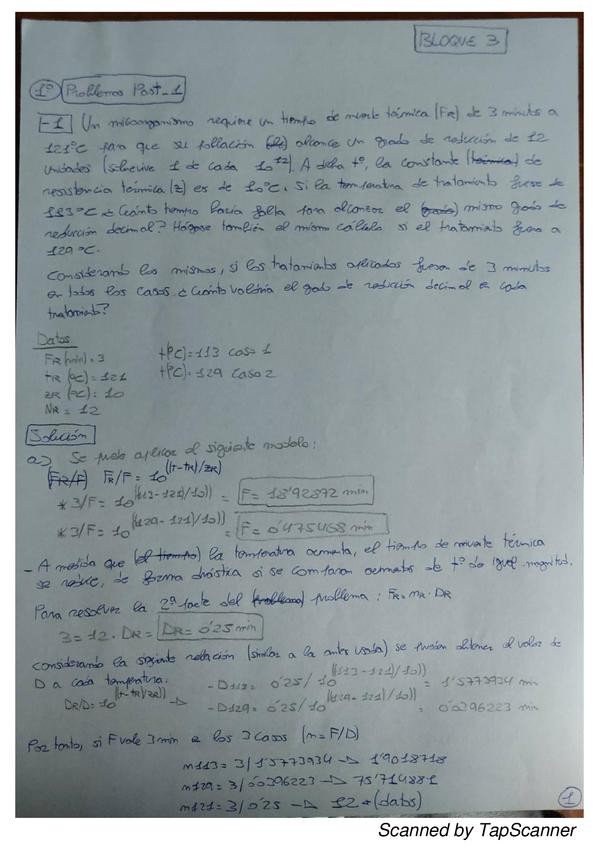 BLOQUE 3
1º Problemas Post_1
-1 Un microorganismo requiere un tiempo de muerte térmica (FR) de 3 minutos a
121ºC para que su población alcance un grado de reducción de 12
unidades (sobrevive 1 de cada 10^12). A dicha tº, la constante (térmica) de
resistencia térmica (z) es de 10ºC. Si la temperatura de tratamiento fuese de
113ºC ¿Cuánto tiempo haría falta para alcanzar el (grado) mismo grado de
reducción decimal? Hágase también el mismo cálculo si el tratamiento fuera a
129ºC.
Considerando los mismos, si los tratamientos aplicados fueran de 3 minutos
en todos los casos ¿Cuánto valdría el grado de reducción decimal en cada
tratamiento?
Datos
FR (min) = 3
t(ºC) = 113 caso 1
tR (ºC) = 121
t(ºC) = 129 caso 2
zR (ºC) = 10
NR = 12
Solución
a) Se puede aplicar el siguiente modelo:
(FR/F) FR/F = 10^((t-tR)/zR)
* 3/F = 10^((113-121)/10)) = F = 18'92872 min
* 3/F = 10^((129-121)/10)) = F = 0'475468 min
- A medida que (el tiempo) la temperatura aumenta, el tiempo de muerte térmica
se reduce, de forma drástica si se comparan aumentos de tº de igual magnitud.
Para resolver la 2ª parte del (problema) problema: FR = nR · DR
3 = 12 · DR = DR = 0'25 min
considerando la siguiente relación (similar a la antes usada) se pueden obtener el valor de
D a cada temperatura:
DR/D = 10^((t-tR)/zR)) → - D113 = 0'25 / 10^((113-121)/10)) = 1'5773934 min
- D129 = 0'25 / 10^((129-121)/10)) = 0'0396223 min
Por tanto, si F vale 3 min en los 3 casos (n = F/D)
n113 = 3/1'5773934 → 1'9018718
n129 = 3/0'0396223 → 75'714881
n121 = 3/0'25 → 12 * (datos)
1
Scanned by TapScanner